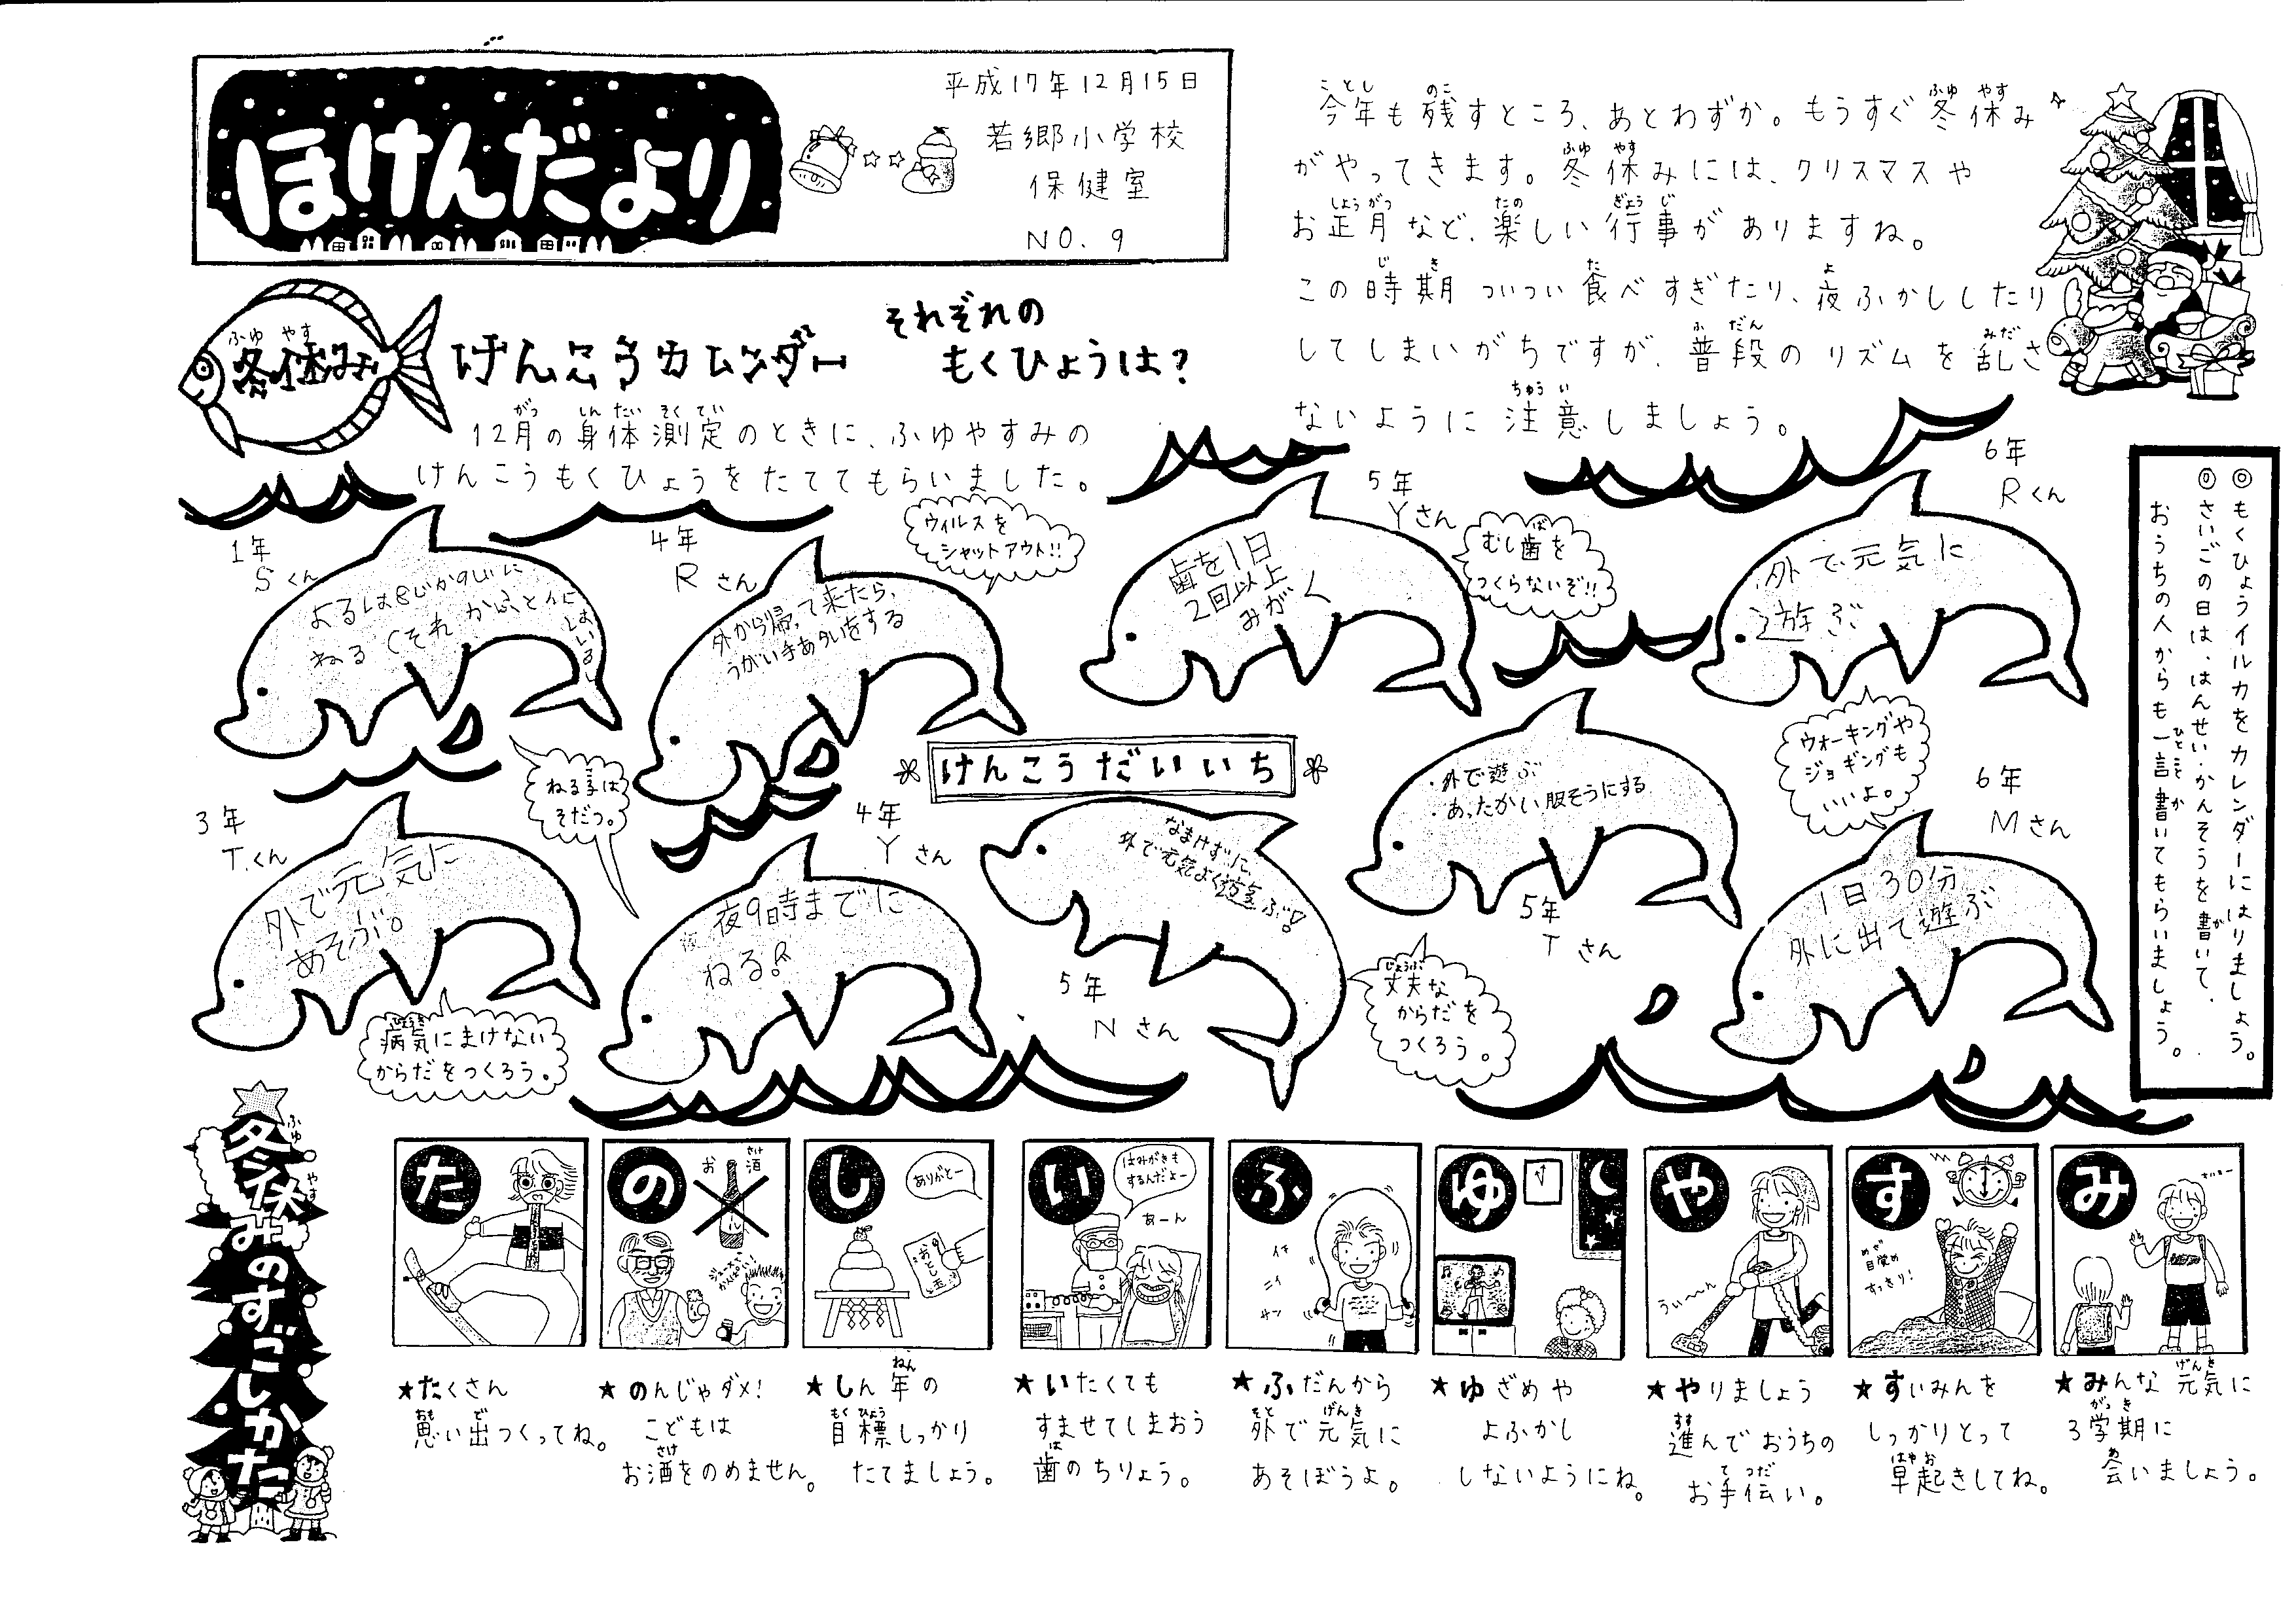 ほけんだより
平成17年12月15日
若郷小学校
保健室
NO. 9
今年も残すところ、あとわずか。もうすぐ冬休み
がやってきます。冬休みには、クリスマスや
お正月など、楽しい行事がありますね。
この時期 ついつい食べすぎたり、夜ふかししたり
してしまいがちですが、普段のリズムを乱さ
ないように注意しましょう。
冬休み
けんこうカレンダー
それぞれの
もくひょうは?
12月の身体測定のときに、ふゆやすみの
けんこうもくひょうをたててもらいました。
◎もくひょうイルカをカレンダーにはりましょう。
◎さいごの日は、はんせい・かんそうを書いて、
おうちの人からも一言書いてもらいましょう。
1年
Sくん
よるは8じか9じに
ねる
4年
Rさん
外から帰って来たら、
うがい手あらいをする
ウィルスを
シャットアウト!!
5年
Yさん
歯を1日
2回以上
みがく
むし歯を
つくらないぞ!!
6年
Rくん
外で元気に
遊ぶ
3年
Tくん
外で元気に
あそぶ。
病気にまけない
からだをつくろう。
ねる子は
そだつ。
4年
Yさん
夜9時までに
ねる!
けんこうだいいち
なまけずに、
外で元気よく遊ぶ!
5年
Nさん
丈夫な
からだを
つくろう。
・外で遊ぶ
・あったかい服そうにする
5年
Tさん
ウォーキングや
ジョギングも
いいよ。
6年
Mさん
1日30分
外に出て遊ぶ
冬休みのすごしかた
た
★たくさん
思い出つくってね。
の
お酒
ジュースで
かんぱい!
★のんじゃダメ!
こどもは
お酒をのめません。
し
ありがとー
おとし玉
★しん年の
目標しっかり
たてましょう。
い
はみがきも
するんだよー
あーん
★いたくても
すませてしまおう
歯のちりょう。
ふ
イチ
ニイ
サン
★ふだんから
外で元気に
あそぼうよ。
ゆ
★ゆざめや
よふかし
しないようにね。
や
うぃ〜〜ん
★やりましょう
進んでおうちの
お手伝い。
す
目覚め
すっきり!
★すいみんを
しっかりとって
早起きしてね。
み
★みんな元気に
3学期に
会いましょう。